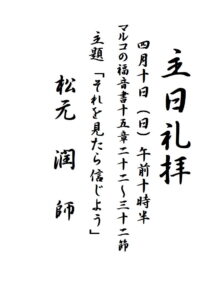 主日礼拝
四月十日（日）午前十時半
マルコの福音書十五章二十二～三十二節
主題「それを見たら信じよう」
松元　潤　師